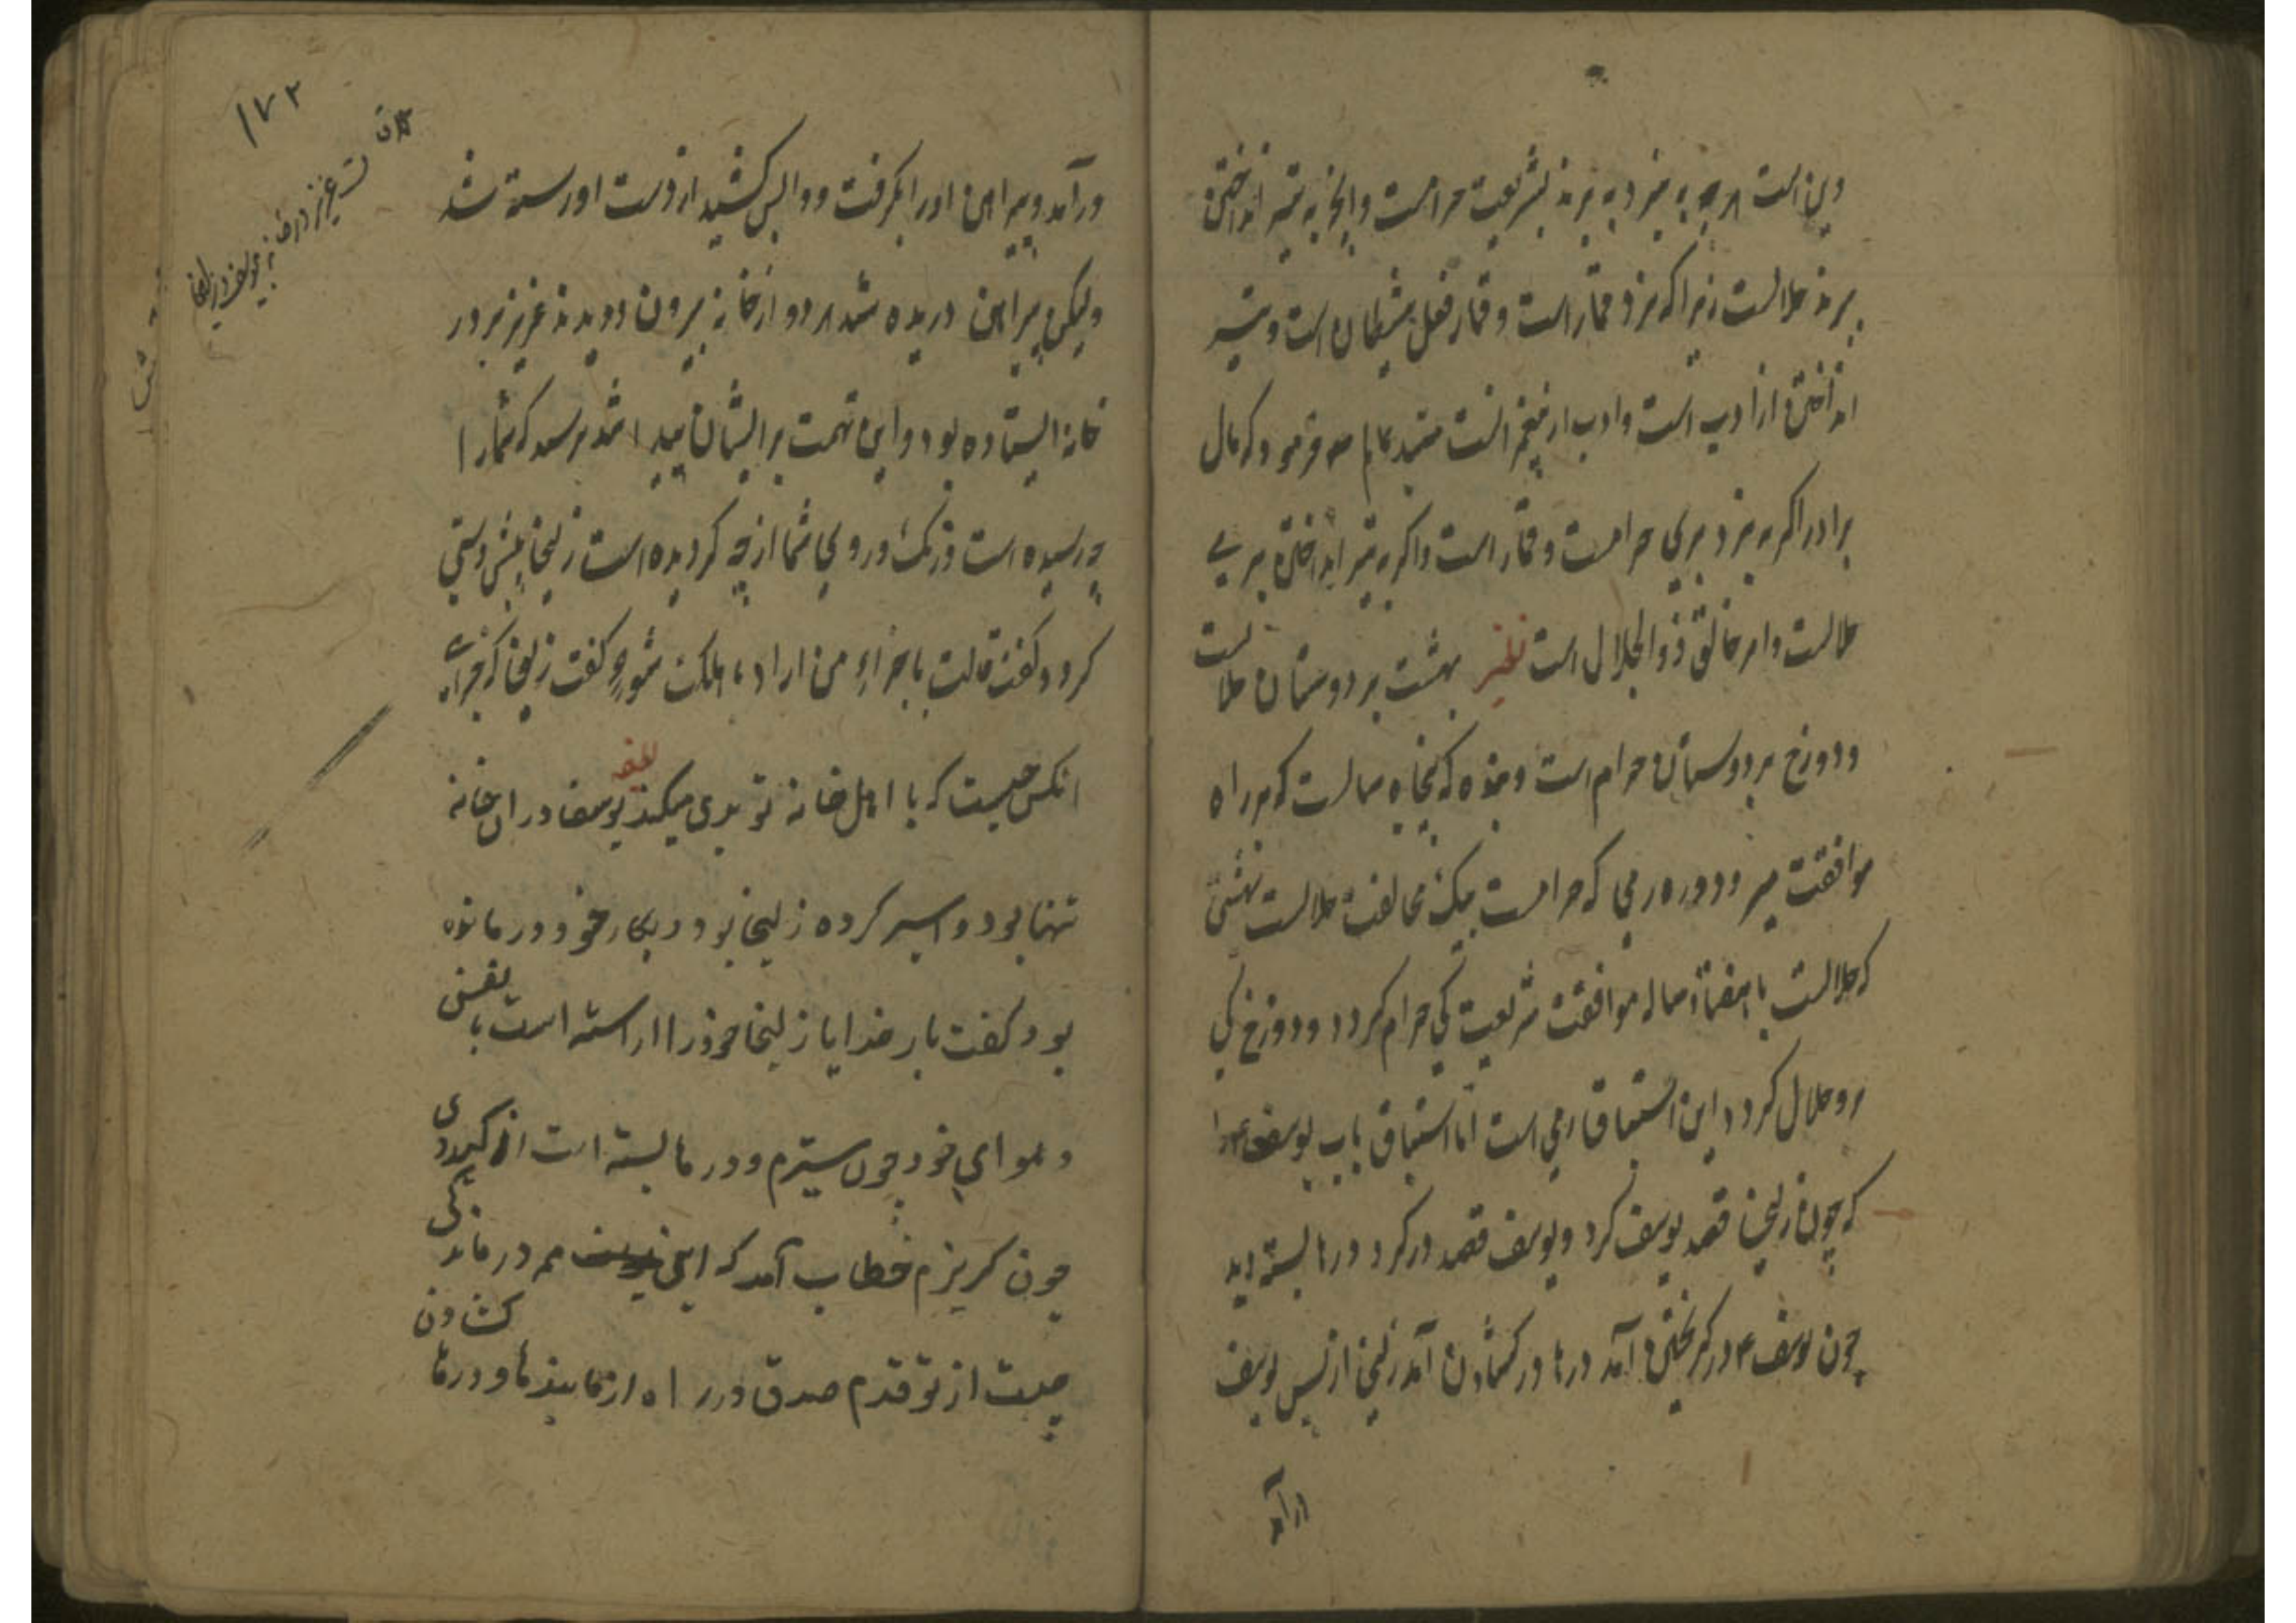 دین است هرچه به نرد به برند بشریعت حرامست وانچه به تیر انداختن
برند حلالست زیرا که نرد قمار است و قمار فعل شیطان است و تیر
انداختن از ادب است و ادب از پیغمبرانست فرمود که مال
برادر اگر به نرد بری حرامست و قمار است واگر به تیر انداختن بری
حلالست وامر خالق ذوالجلال است نظیر بهشت بر دوستان حلالست
ودوزخ بر دوستان حرام است وبنده که پنجاه سالست که بر راه
موافقت میرود دوزخ بر وی که حرامست بیک مخالفت حلالست بهشتی
که حلالست با هفتاد ساله موافقت شریعت کی حرام گردد ودوزخ کی
برو حلال گردد این استباق است اما استباق باب یوسف را
که چون زلیخا قصد یوسف کرد ویوسف قصد در کرد درها بسته دید
چون یوسف ع در گریختن آمد درها در گشادن آمد زلیخا از پس یوسف
در آمد
۱۷۲
در آمد وپیراهن اورا بگرفت و واپس کشید از دست او رسته شد
ولیکن پیراهن دریده شد هر دو از خانه بیرون دویدند عزیز بر در
خانه ایستاده بود واین تهمت بر ایشان پیدا شد پرسید که شمارا
چه رسیده است ورنک و روی شما از چه گردیده است زلیخا پیش دستی
کرد وگفت قالت ما جزاء من اراد باهلک سوء گفت زلیخا که جزای
انکس چیست که با اهل خانه تو بدی میکند یوسف در ان خانه
تنها بود و اسیر کرده زلیخا بود و بکار خود درمانده
بود گفت بار خدایا زلیخا خود را اراسته است با نفسی
و هوای خود چون ستیزم ودرها بسته است از
چون گریزم خطاب آمد که ای یوسف هم درماندگی
چیست از تو قدم صدق در راه از ما بندها و درها گشادن